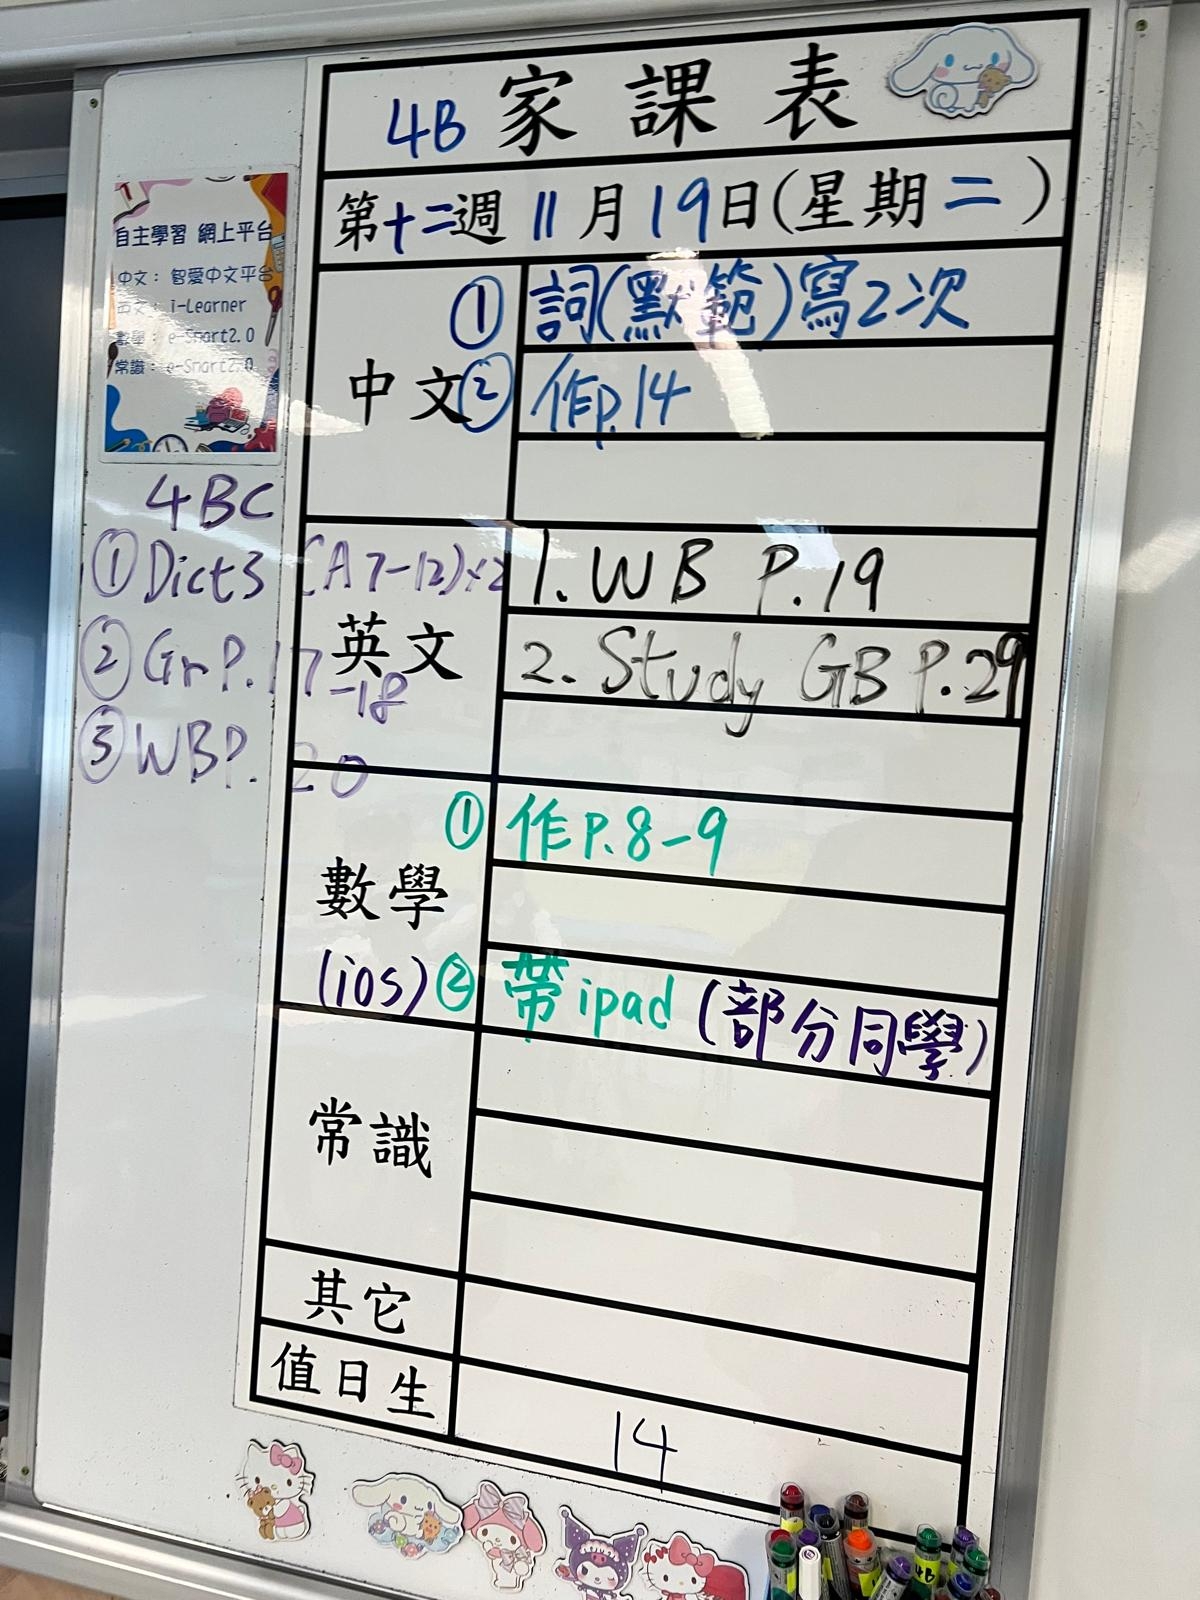 4B 家課表
第十二週 11月19日(星期二)
自主學習 網上平台
中文：智愛中文平台
英文：i-Learner
數學：e-Smart2.0
常識：e-Smart2.0
中文
① 詞(默範)寫2次
② 作P.14
4BC
① Dict3 (A7-12)×2
② Gr P.17-18
③ WB P.20
英文
1. WB P.19
2. Study GB P.29
數學
(ios)
① 作P.8-9
② 帶ipad (部分同學)
常識
其它
值日生
14
4B